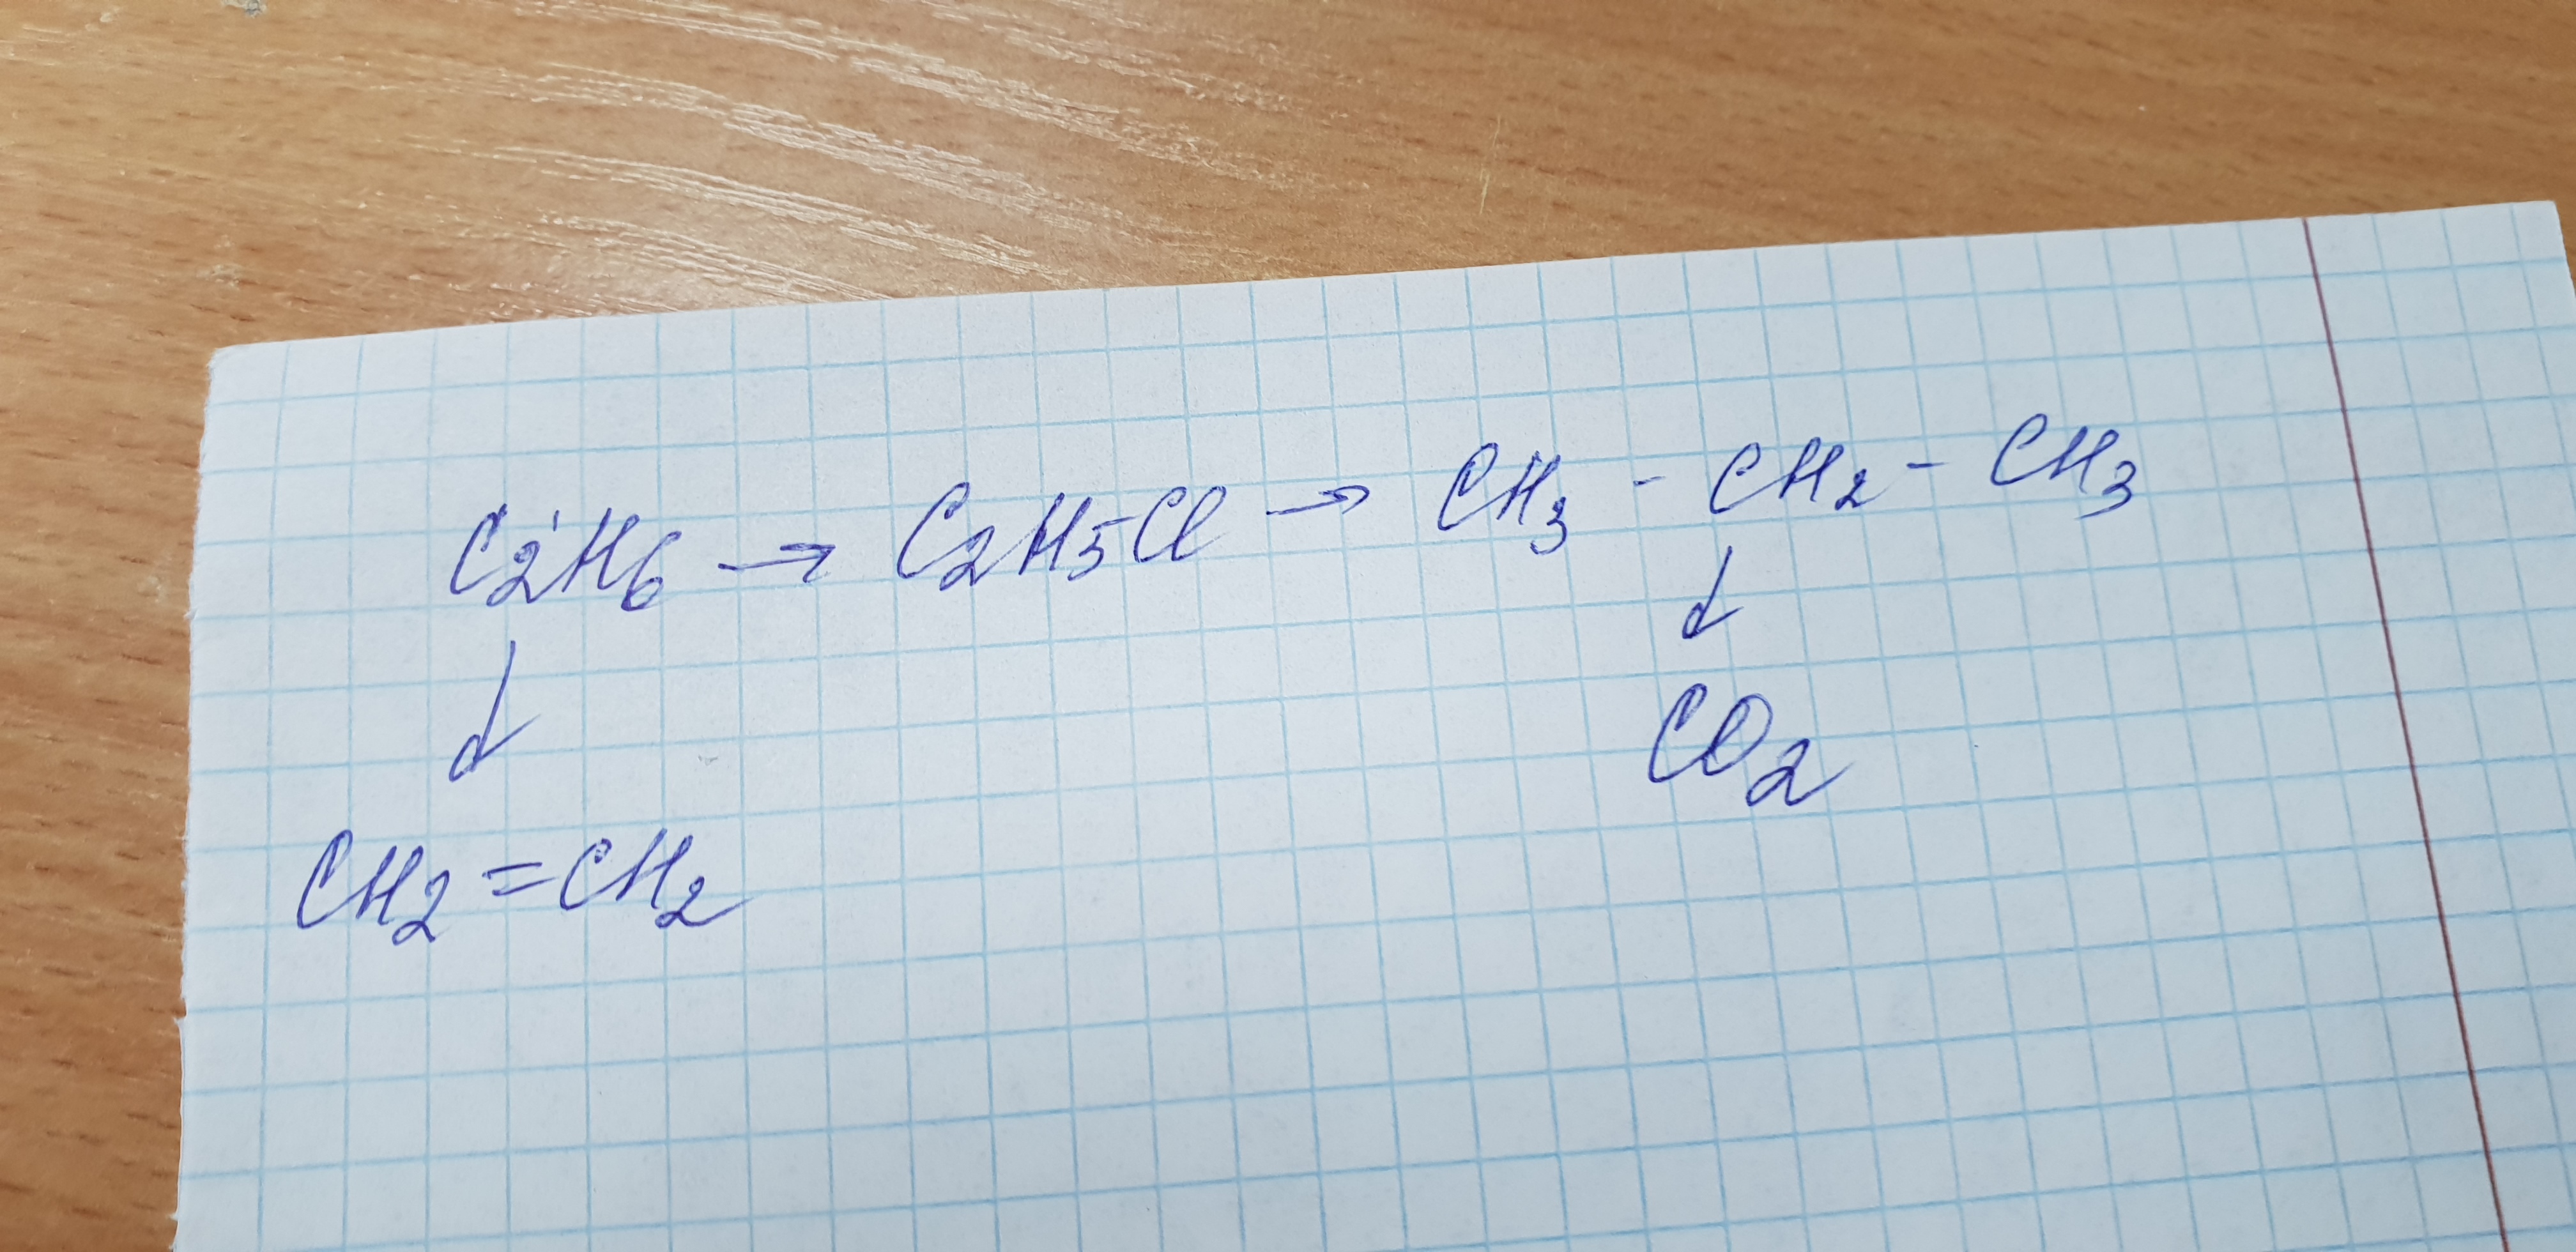 C2H6 → C2H5Cl → CH3 - CH2 - CH3
↓ ↓
CO2
CH2 = CH2